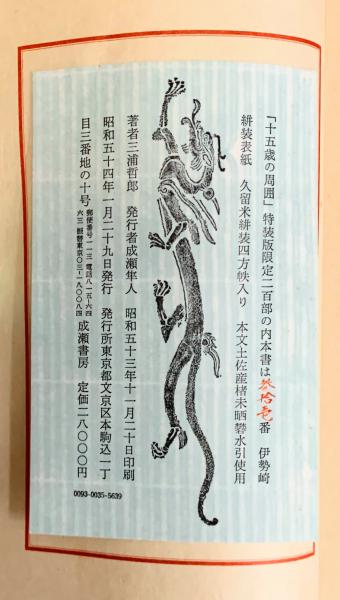 「十五歳の周囲」特装版限定二百部の内本書は参拾壱番　伊勢崎
絣装表紙　久留米絣装四方帙入り　本文土佐産楮未晒礬水引使用
著者三浦哲郎　発行者成瀬隼人　昭和五十三年十一月二十日印刷
昭和五十四年一月二十九日発行　発行所東京都文京区本駒込一丁
目三番地の十号　郵便番号一一三　電話八一五-六四
六三　振替東京〇三-一八〇〇八四　成瀬書房　定価二八〇〇〇円
0093-0035-5639